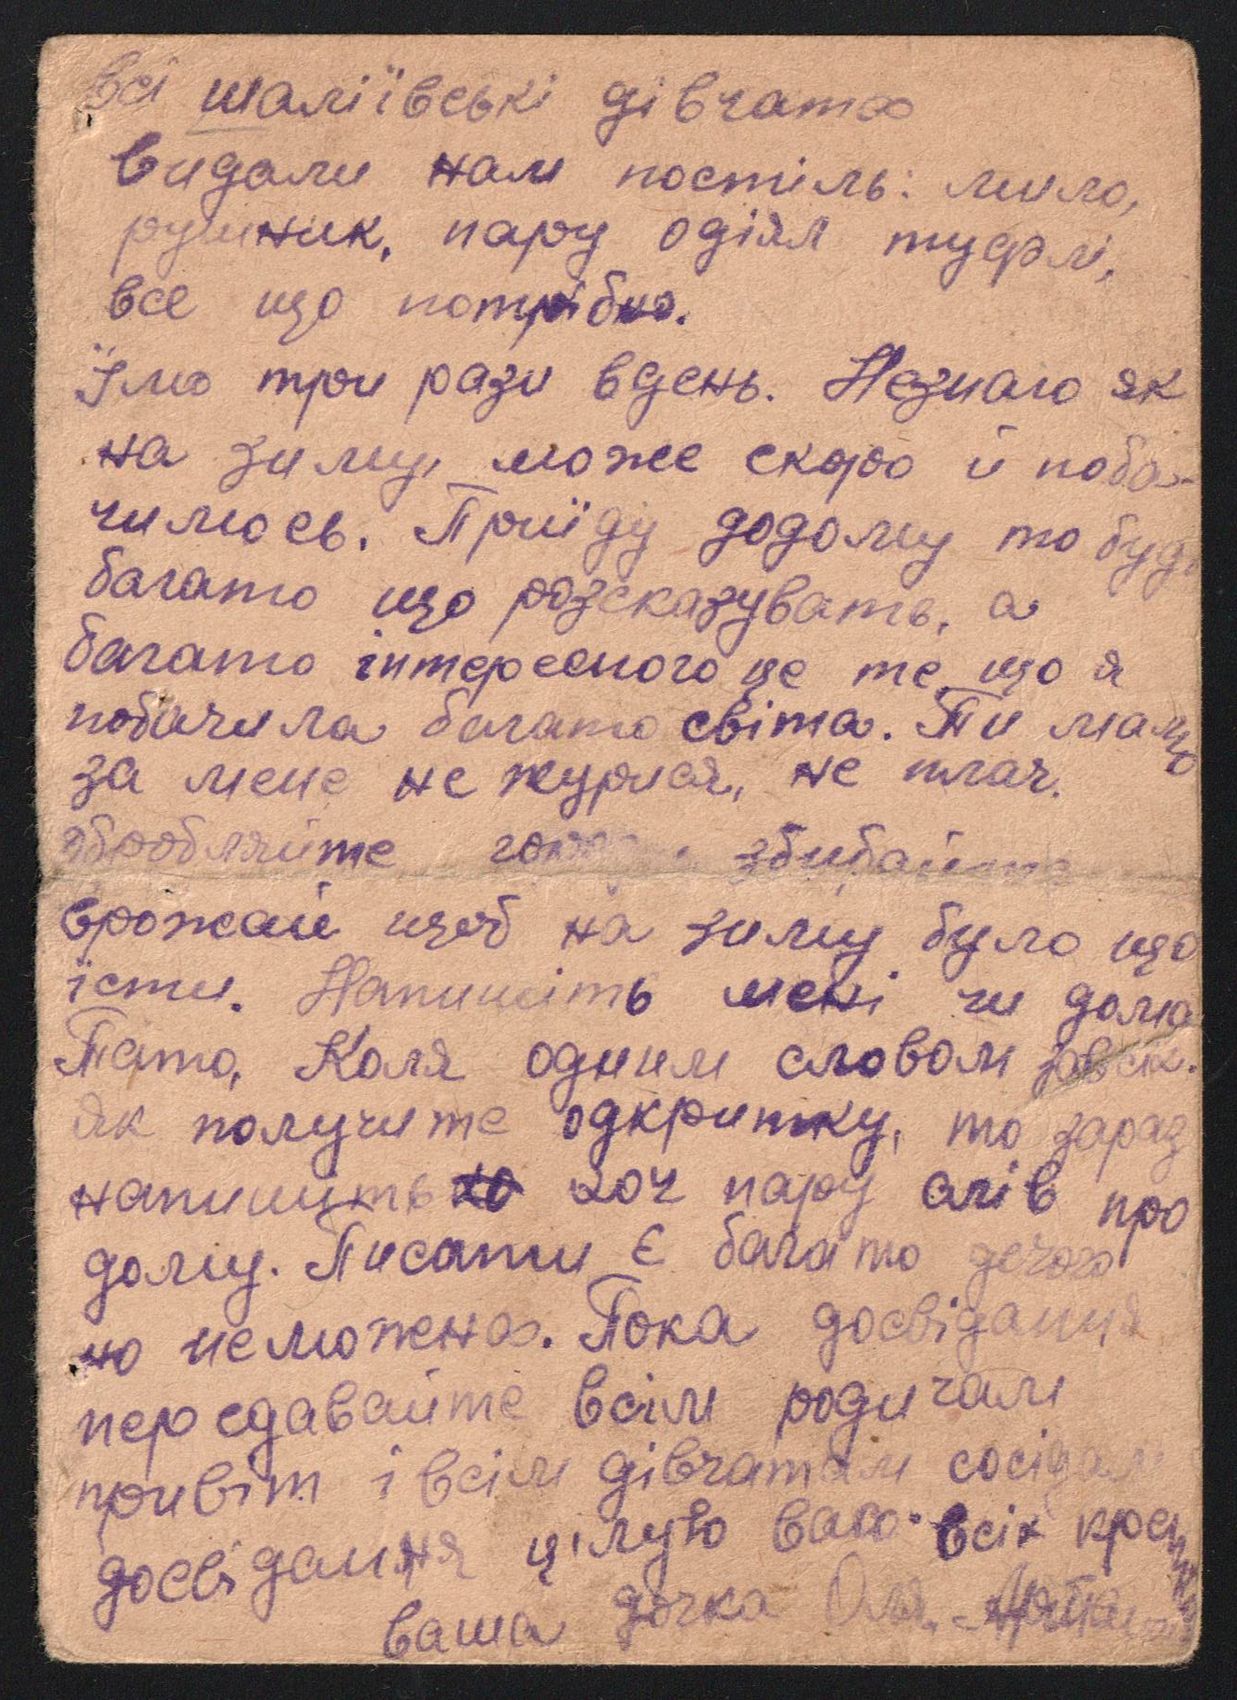 всі шаліївські дівчата
видали нам постіль: мило,
рушник, пару одіял туфлі,
все що потрібно.
Їмо три рази вдень. Незнаю як
на зиму, може скоро й поба-
чимось. Приїду додому то буде
багато що розсказувать, а
багато інтересного це те що я
побачила багато світа. Ти мамо
за мене не журися, не плач.
обробляйте збирайте
врожай щоб на зиму було що
їсти. Напишіть мені чи дома
Тато, Коля одним словом
Як получите одкритку, то зараз
напишіть хоч пару слів про
дому. Писати є багато дечого
но неможна. Пока досвідання
передавайте всім родичам
привіт і всім дівчатам сосідам
досвідання цілую вас всіх крєпко
ваша дочка Оля.